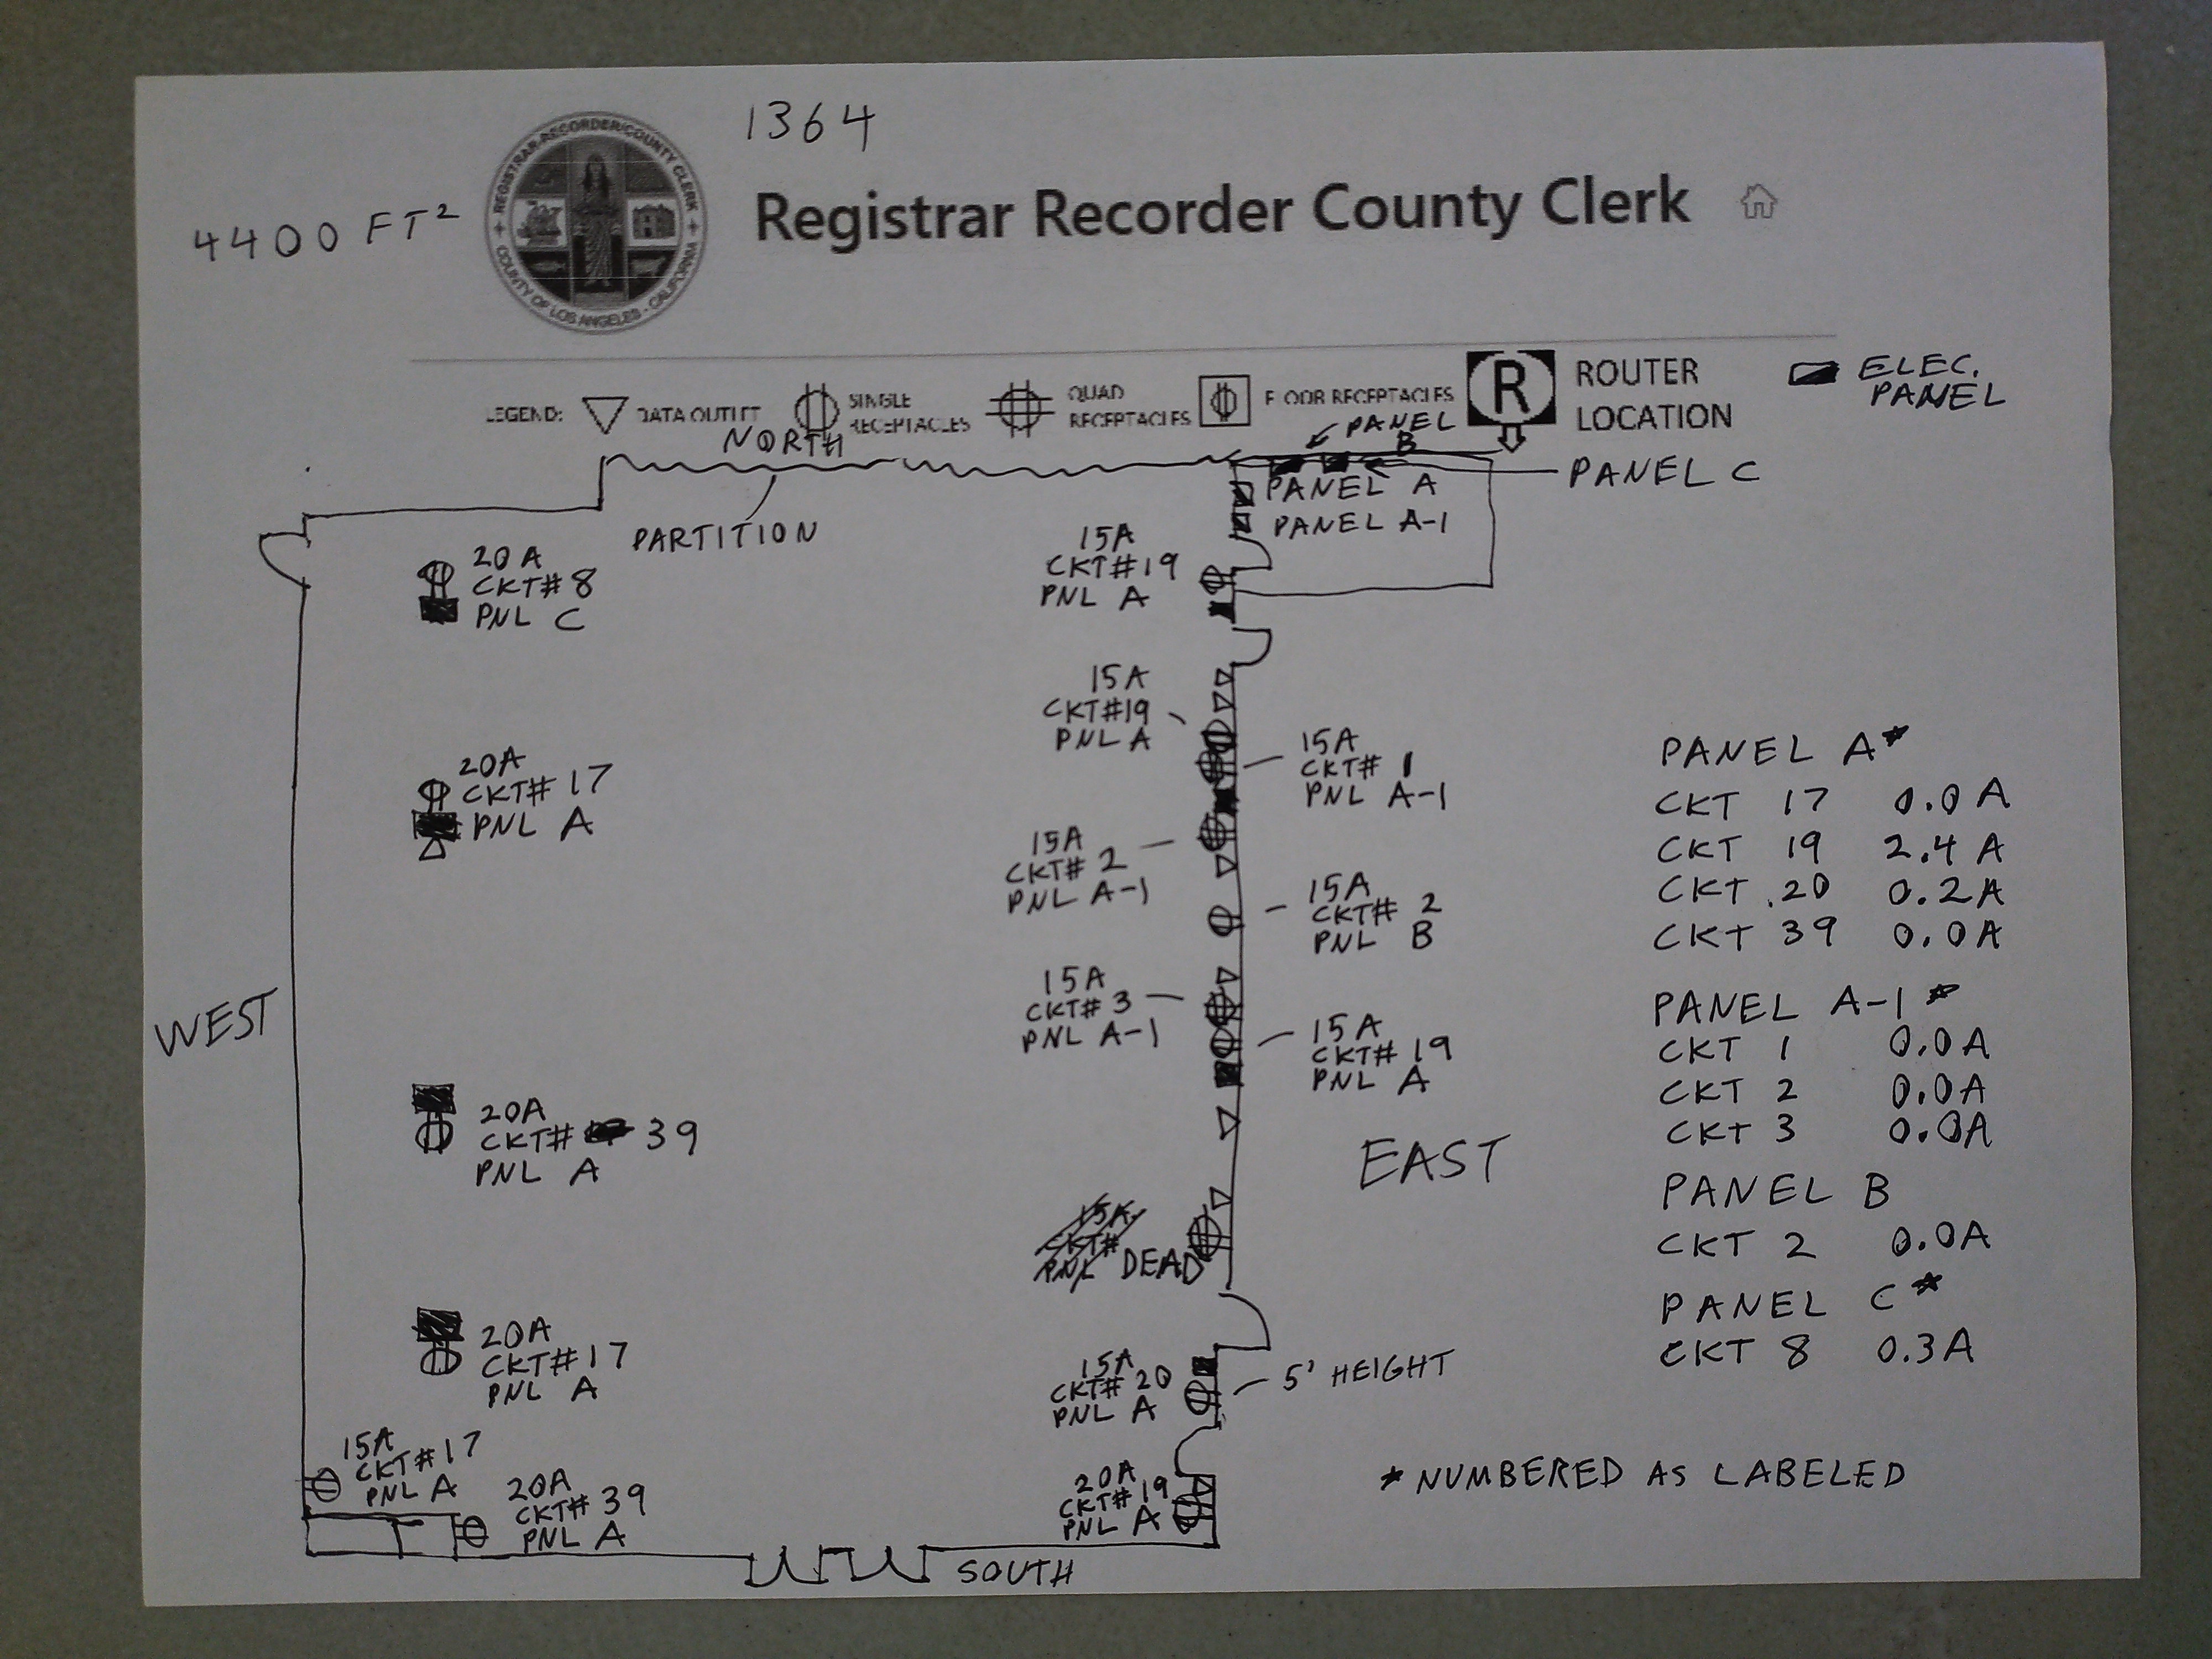 1364
4400 FT²
REGISTRAR-RECORDER/COUNTY CLERK
COUNTY OF LOS ANGELES - CALIFORNIA
Registrar Recorder County Clerk
LEGEND:
DATA OUTLET
SINGLE
RECEPTACLES
QUAD
RECEPTACLES
FLOOR RECEPTACLES
R
ROUTER
LOCATION
ELEC.
PANEL
NORTH
PANEL
B
PANEL C
PANEL A
PANEL A-1
PARTITION
20A
CKT# 8
PNL C
15A
CKT#19
PNL A
15A
CKT#19
PNL A
15A
CKT# 1
PNL A-1
20A
CKT# 17
PNL A
15A
CKT# 2
PNL A-1
15A
CKT# 2
PNL B
15A
CKT# 3
PNL A-1
15A
CKT# 19
PNL A
WEST
20A
CKT# 39
PNL A
EAST
15A
CKT#
PNL DEAD
20A
CKT#17
PNL A
15A
CKT# 20
PNL A
5' HEIGHT
15A
CKT#17
PNL A
20A
CKT# 39
PNL A
20A
CKT#19
PNL A
SOUTH
PANEL A*
CKT 17 0.0A
CKT 19 2.4A
CKT 20 0.2A
CKT 39 0.0A
PANEL A-1*
CKT 1 0.0A
CKT 2 0.0A
CKT 3 0.0A
PANEL B
CKT 2 0.0A
PANEL C*
CKT 8 0.3A
* NUMBERED AS LABELED